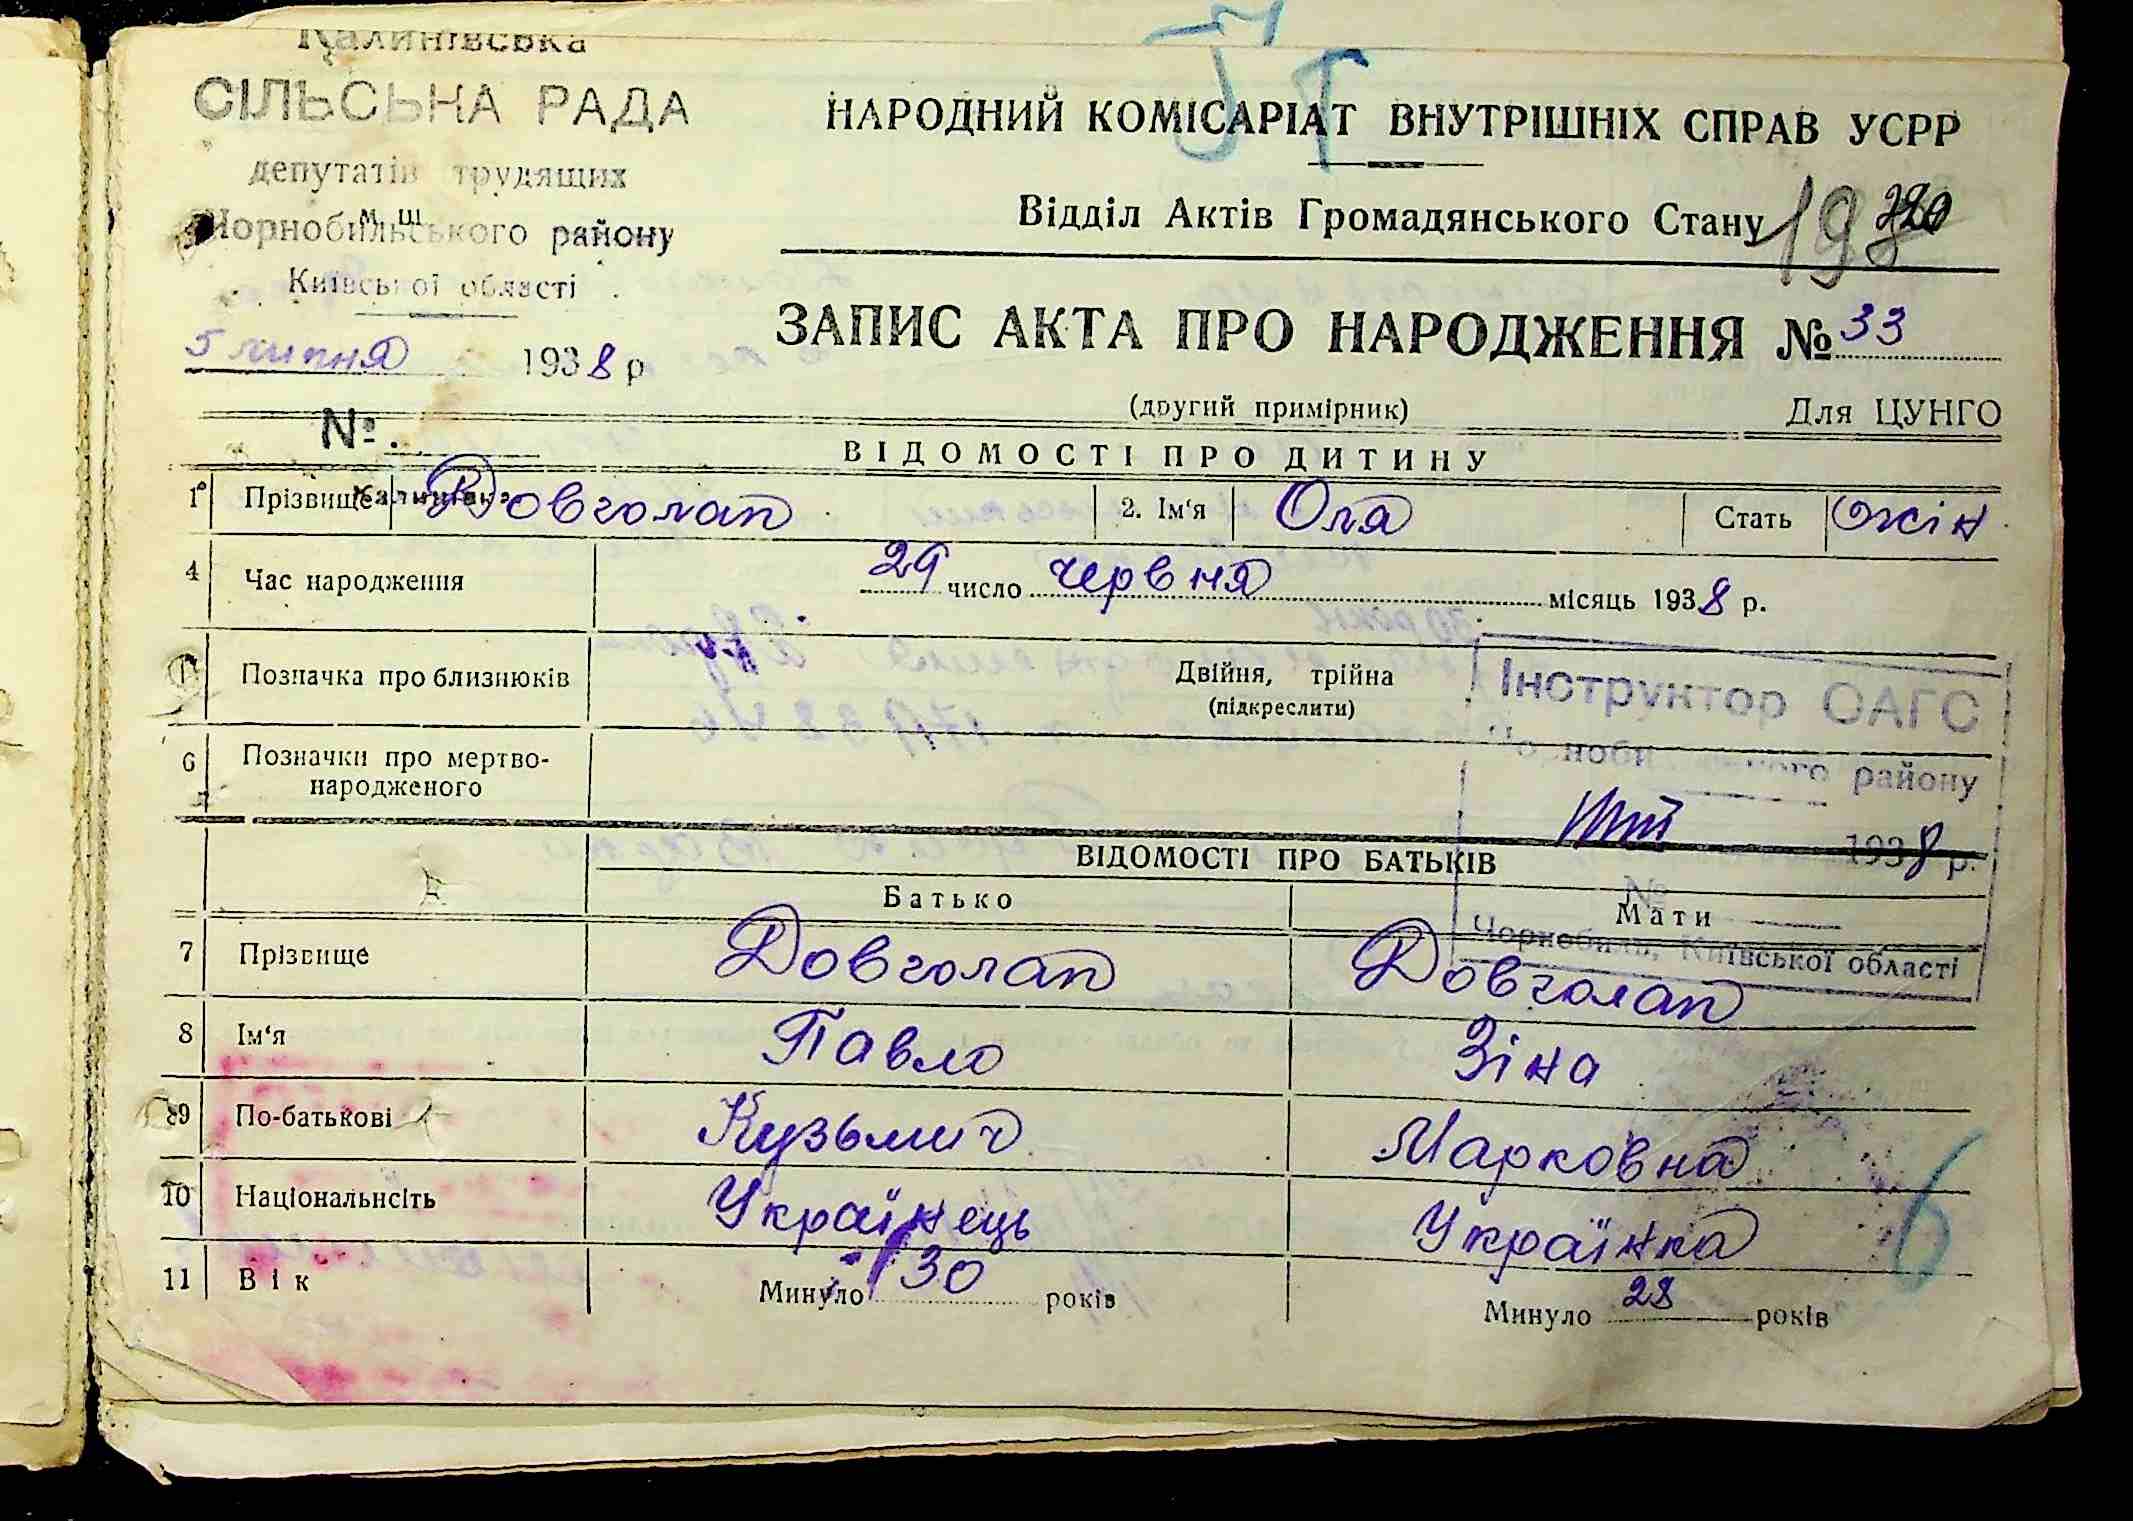 Калинівська
СІЛЬСЬКА РАДА
депутатів трудящих
Чорнобильського району
Київської області
5 липня 1938 р
№
НАРОДНИЙ КОМІСАРІАТ ВНУТРІШНІХ СПРАВ УСРР
Відділ Актів Громадянського Стану
ЗАПИС АКТА ПРО НАРОДЖЕННЯ № 33
(другий примірник) Для ЦУНГО
ВІДОМОСТІ ПРО ДИТИНУ
1 Прізвище Довголап 2. Ім'я Оля Стать жін
4 Час народження 29 число червня місяць 1938 р.
Позначка про близнюків Двійня, трійна
(підкреслити)
6 Позначки про мертво-
народженого
Інструктор ОАГС
району
1938 р.
№
Чорнобиль, Київської області
ВІДОМОСТІ ПРО БАТЬКІВ
Батько Мати
7 Прізвище Довголап Довголап
8 Ім'я Павло Зіна
9 По-батькові Кузьмич Марковна
10 Національнсіть Українець Українка
11 Вік Минуло 30 років Минуло 28 років
6